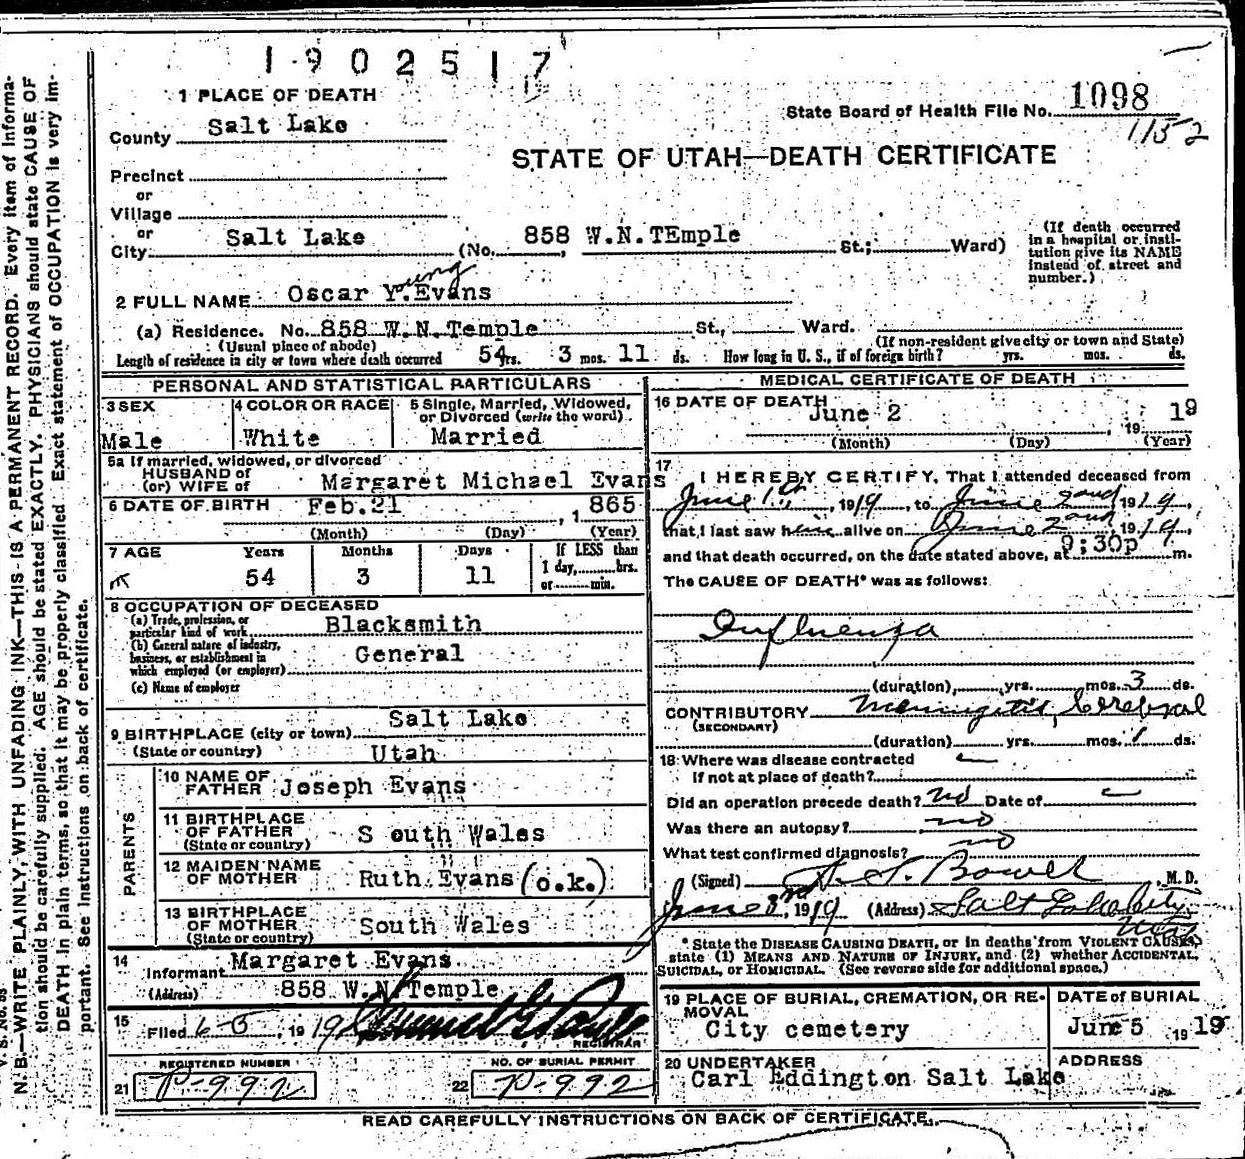 1902517
1 PLACE OF DEATH
State Board of Health File No. 1098
1152
County Salt Lake
STATE OF UTAH—DEATH CERTIFICATE
Precinct
or
Village
or
City Salt Lake (No. 858 W.N.TEmple St.; Ward)
(If death occurred in a hospital or insti-
tution give its NAME
instead of street and
number.)
2 FULL NAME Oscar Y.Evans
oung
(a) Residence. No. 858 W.N.Temple St., Ward.
(Usual place of abode) (If non-resident give city or town and State)
Length of residence in city or town where death occurred 54 yrs. 3 mos. 11 ds. How long in U. S., if of foreign birth? yrs. mos. ds.
PERSONAL AND STATISTICAL PARTICULARS
3 SEX
Male
4 COLOR OR RACE
White
5 Single, Married, Widowed,
or Divorced (write the word)
Married
5a If married, widowed, or divorced
HUSBAND of
(or) WIFE of Margaret Michael Evans
6 DATE OF BIRTH Feb.21, 1 865
(Month) (Day) (Year)
7 AGE Years Months Days If LESS than
1 day, hrs.
or min.
54 3 11
8 OCCUPATION OF DECEASED
(a) Trade, profession, or
particular kind of work Blacksmith
(b) General nature of industry,
business, or establishment in
which employed (or employer) General
(c) Name of employer
9 BIRTHPLACE (city or town) Salt Lake
(State or country) Utah
PARENTS
10 NAME OF
FATHER Joseph Evans
11 BIRTHPLACE
OF FATHER
(State or country) S outh Wales
12 MAIDEN NAME
OF MOTHER Ruth Evans (o.k.)
13 BIRTHPLACE
OF MOTHER
(State or country) South Wales
14
Informant Margaret Evans
(Address) 858 W.N.Temple
15
Filed 6-5, 1919
REGISTRAR
REGISTERED NUMBER
21 P-992
NO. OF BURIAL PERMIT
22 P-992
MEDICAL CERTIFICATE OF DEATH
16 DATE OF DEATH
June 2, 19 19
(Month) (Day) (Year)
17 I HEREBY CERTIFY, That I attended deceased from
June 1st, 1919, to June 2nd 1919,
that I last saw him alive on June 2nd, 1919,
and that death occurred, on the date stated above, at 9;30p m.
The CAUSE OF DEATH* was as follows:
Influenza
(duration) yrs. mos. 3 ds.
CONTRIBUTORY Meningitis, Cerebral
(SECONDARY)
(duration) yrs. mos. 1 ds.
18 Where was disease contracted
If not at place of death?
Did an operation precede death? no Date of
Was there an autopsy? no
What test confirmed diagnosis? no
(Signed) Bower, M. D.
June 3rd, 1919 (Address) Salt Lake City,
Utah
* State the DISEASE CAUSING DEATH, or in deaths from VIOLENT CAUSES,
state (1) MEANS AND NATURE OF INJURY, and (2) whether ACCIDENTAL,
SUICIDAL, or HOMICIDAL. (See reverse side for additional space.)
19 PLACE OF BURIAL, CREMATION, OR RE-
MOVAL
City cemetery
DATE of BURIAL
June 5 19 19
20 UNDERTAKER
Carl Eddington Salt Lake
ADDRESS
READ CAREFULLY INSTRUCTIONS ON BACK OF CERTIFICATE.
N. B.—WRITE PLAINLY, WITH UNFADING INK—THIS IS A PERMANENT RECORD. Every item of informa-
tion should be carefully supplied. AGE should be stated EXACTLY. PHYSICIANS should state CAUSE OF
DEATH in plain terms, so that it may be properly classified. Exact statement of OCCUPATION is very im-
portant. See Instructions on back of certificate.